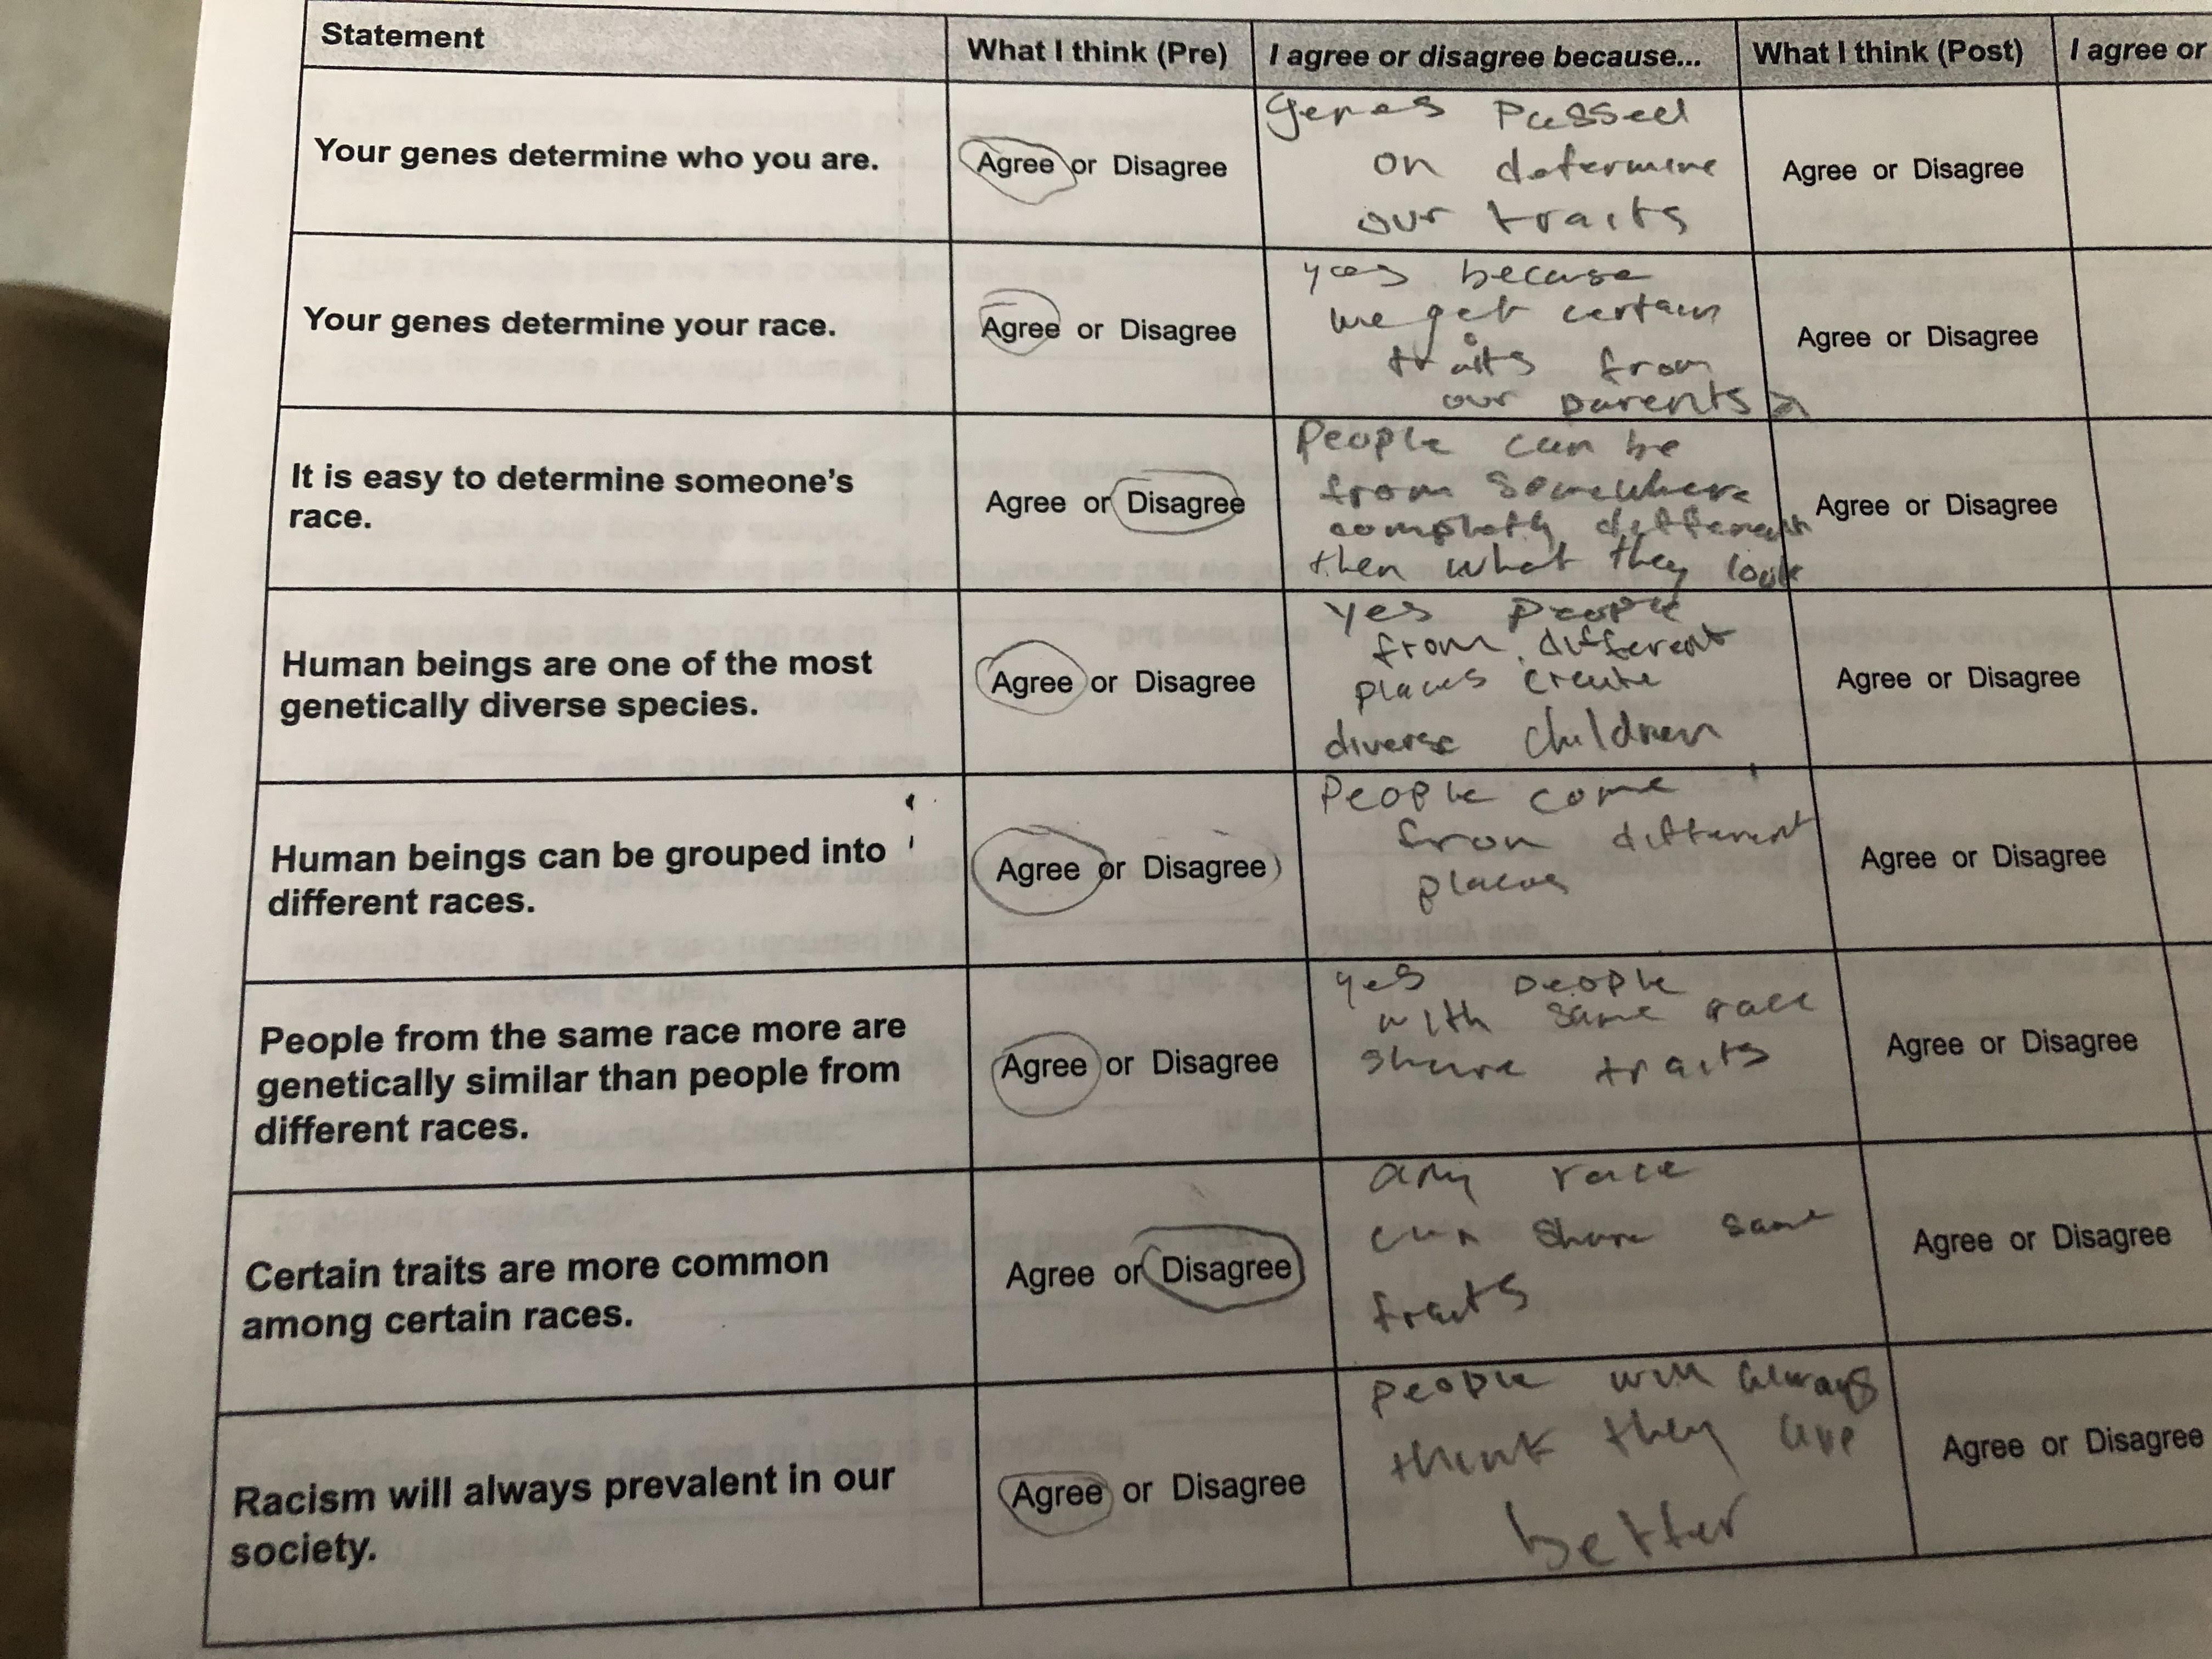 Statement
What I think (Pre)
I agree or disagree because...
What I think (Post)
I agree or
Your genes determine who you are.
Agree or Disagree
Genes passed
on determine
our traits
Agree or Disagree
Your genes determine your race.
Agree or Disagree
yes because
we get certain
traits from
our parents
Agree or Disagree
It is easy to determine someone's
race.
Agree or Disagree
People can be
from somewhere
completly different
then what they look
Agree or Disagree
Human beings are one of the most
genetically diverse species.
Agree or Disagree
yes people
from different
places create
diverse children
Agree or Disagree
Human beings can be grouped into
different races.
Agree or Disagree
People come
from different
places
Agree or Disagree
People from the same race more are
genetically similar than people from
different races.
Agree or Disagree
yes people
with same race
share traits
Agree or Disagree
Certain traits are more common
among certain races.
Agree or Disagree
any race
can share same
traits
Agree or Disagree
Racism will always prevalent in our
society.
Agree or Disagree
people will always
think they are
better
Agree or Disagree